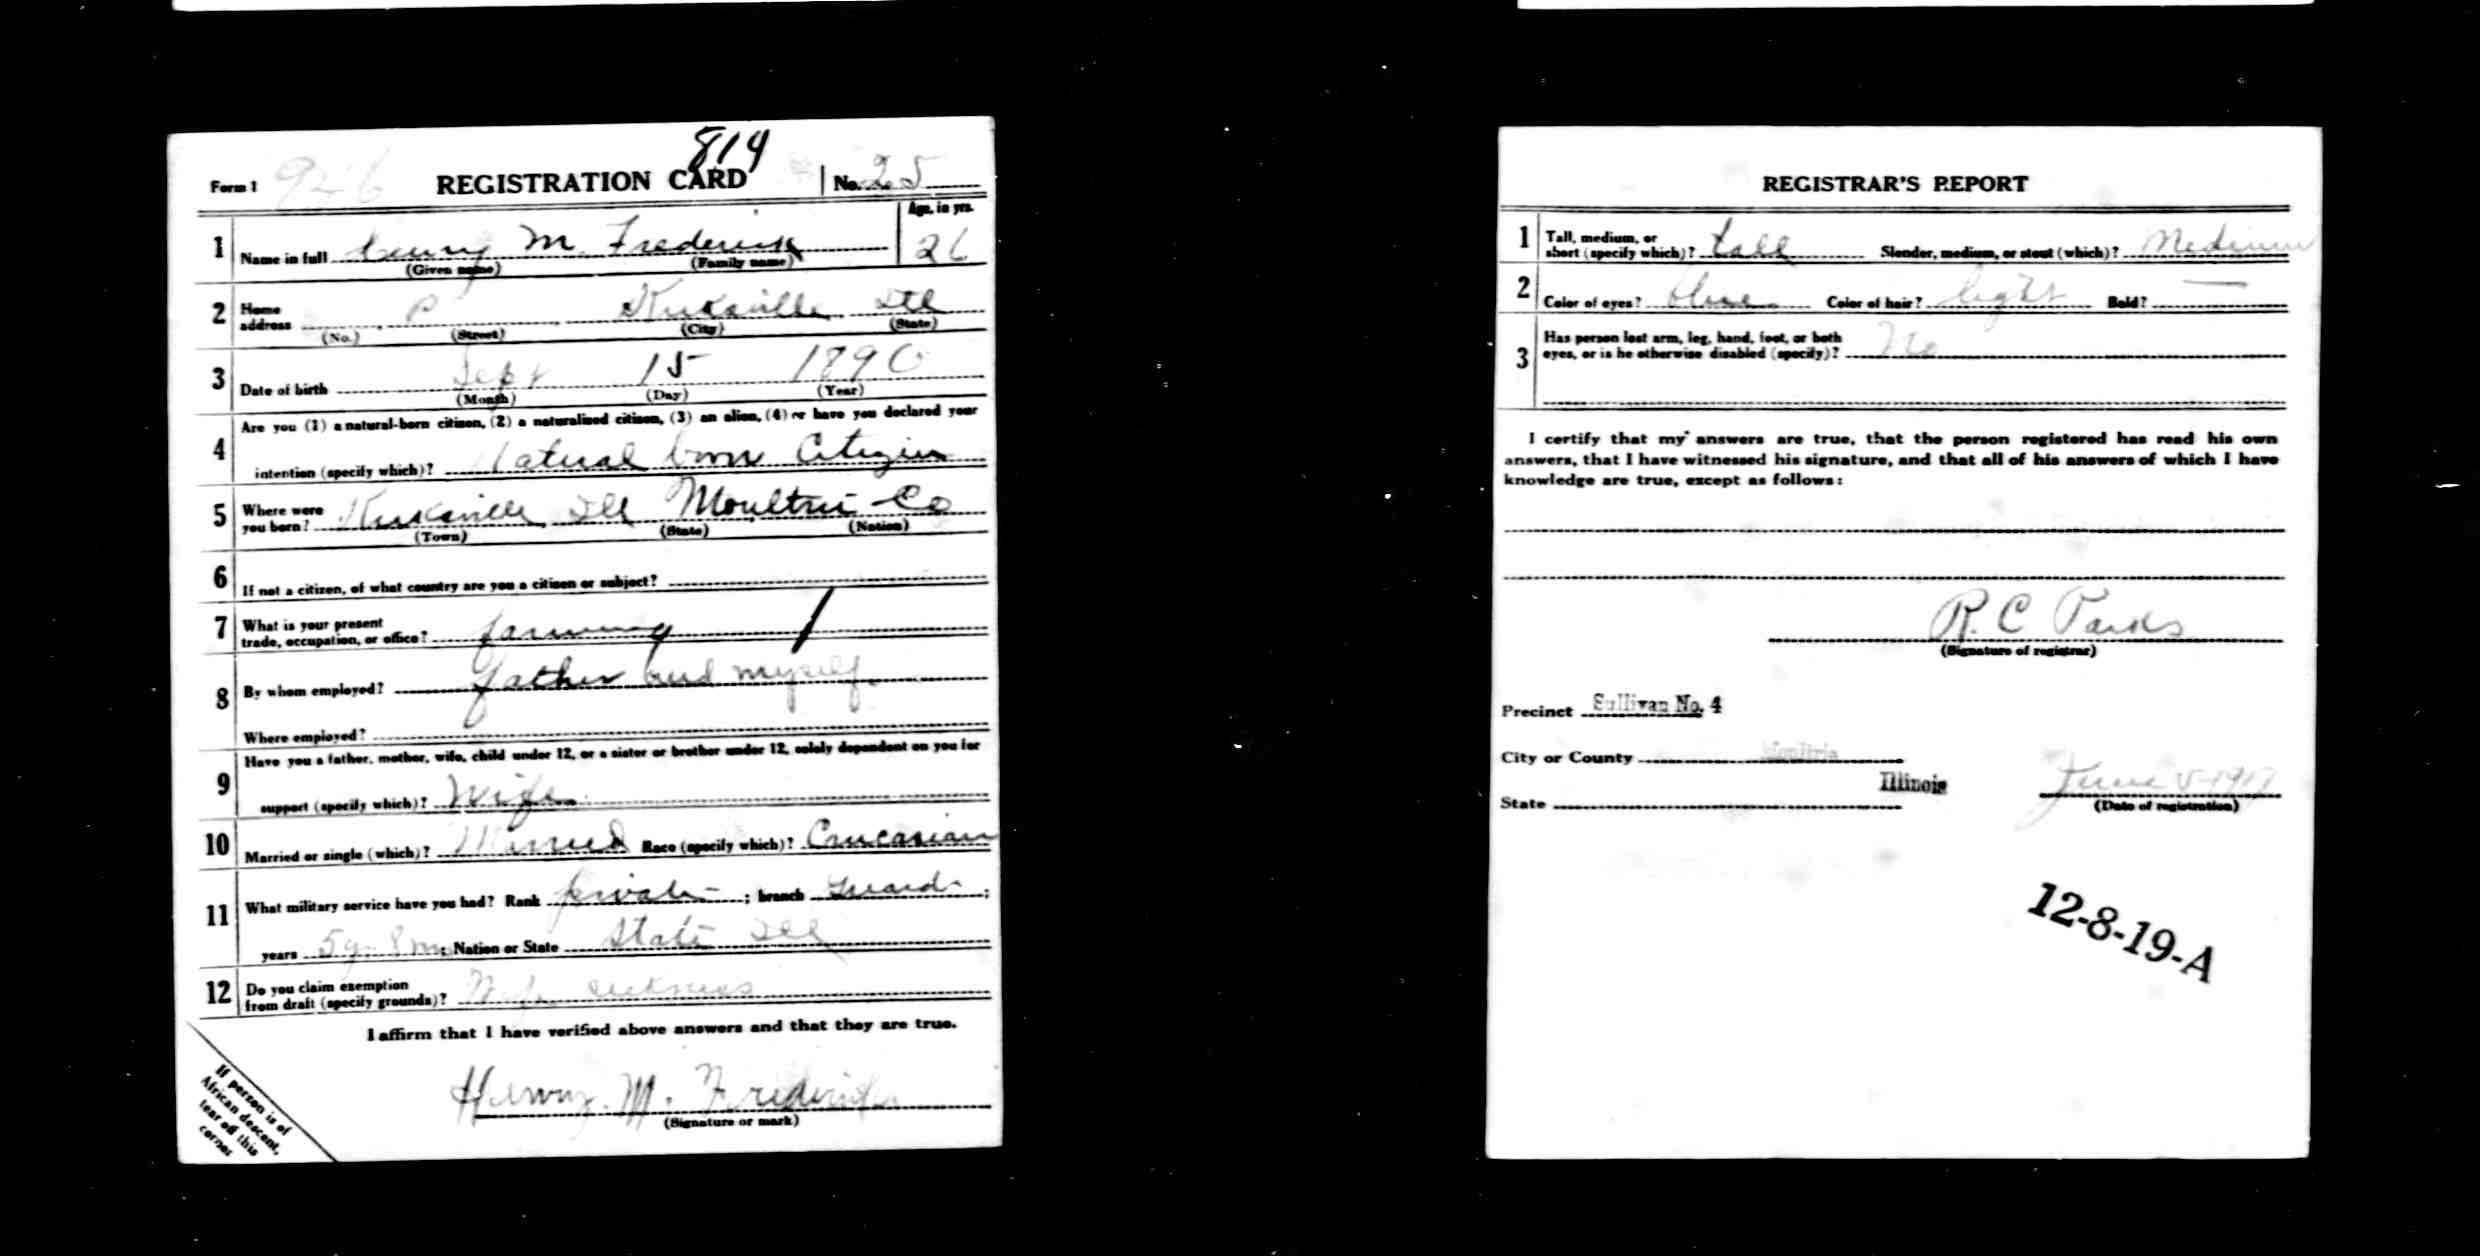 814
Form 1 926 REGISTRATION CARD No. 25
Age, in yrs.
1 Name in full Henry M. Frederick 26
(Given name) (Family name)
2 Home address Kirksville Ill
(No.) (Street) (City) (State)
3 Date of birth Sept 15 1890
(Month) (Day) (Year)
4 Are you (1) a natural-born citizen, (2) a naturalized citizen, (3) an alien, (4) or have you declared your
intention (specify which)? Natural born Citizen
5 Where were you born? Kirksville Ill Moultrie Co
(Town) (State) (Nation)
6 If not a citizen, of what country are you a citizen or subject?
7 What is your present trade, occupation, or office? farming
8 By whom employed? father and myself
Where employed?
9 Have you a father, mother, wife, child under 12, or a sister or brother under 12, solely dependent on you for
support (specify which)? Wife
10 Married or single (which)? Married Race (specify which)? Caucasian
11 What military service have you had? Rank private ; branch Guard ;
years 5 y. 8 mo ; Nation or State State Ill
12 Do you claim exemption from draft (specify grounds)? Wife sickness
I affirm that I have verified above answers and that they are true.
Henry. M. Frederick
(Signature or mark)
If person is of
African descent,
tear off this
corner
REGISTRAR'S REPORT
1 Tall, medium, or short (specify which)? tall Slender, medium, or stout (which)? Medium
2 Color of eyes? blue Color of hair? light Bald? —
3 Has person lost arm, leg, hand, foot, or both
eyes, or is he otherwise disabled (specify)? No
I certify that my answers are true, that the person registered has read his own
answers, that I have witnessed his signature, and that all of his answers of which I have
knowledge are true, except as follows:
R. C Parks
(Signature of registrar)
Precinct Sullivan No. 4
City or County Moultrie
State Illinois June 5-1917
(Date of registration)
12-8-19-A